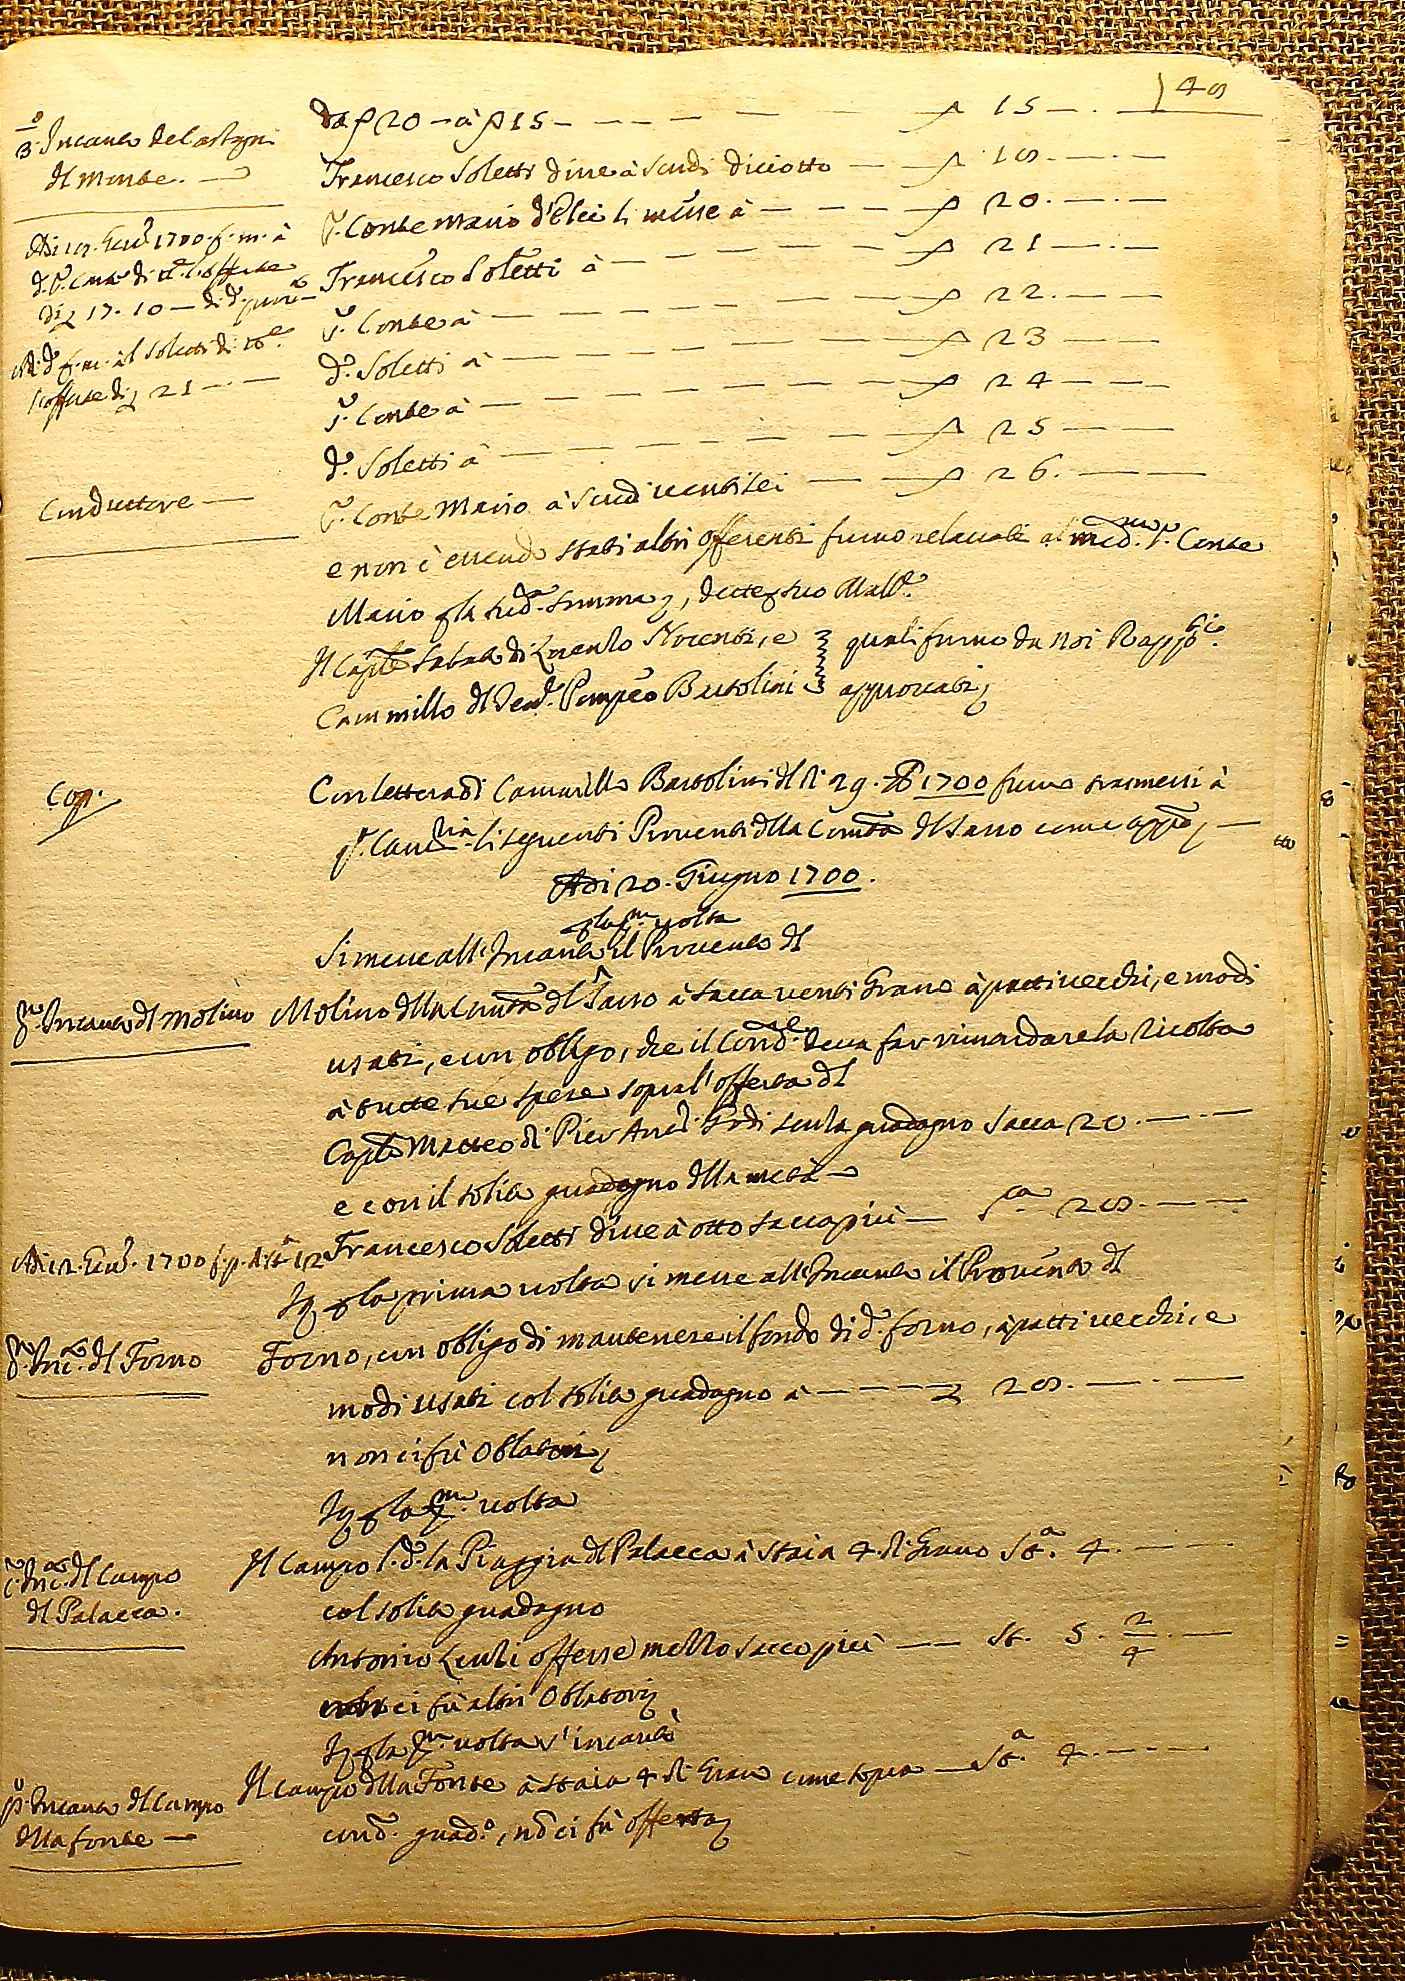 48
3.o Incanto de Castagni
del Monte. —
da ƒ 20 — à ƒ 15 — ƒ 15 —
Francesco Soletti disse à Scudi diciotto — ƒ 18. —
S.r Conte Mario d'Elci li messe à — ƒ 20. —
Francesco Soletti à — ƒ 21 —
S.r Conte à — ƒ 22. —
d.o Soletti à — ƒ 23 —
S.r Conte à — ƒ 24 —
d.o Soletti à — ƒ 25 —
S.r Conte Mario à Scudi ventisei — ƒ 26. —
Adi 19. Genn.o 1700. f. m. à
di 17. 10 —
l'offerta di 21 —
Conduttore —
e non c'essendo stati altri offerenti furno relassati al med.mo S.r Conte
Mario p la sud.a somma, dette p suo Mall.re
Il Cap.no Sabat.o di Lorenzo Nocenti, e } quali furno da noi Rapp.ti
Cammillo del Ten.e Pompeo Bartolini } approvati
Cop.
Con lettera di Cammillo Bartolini del dì 29. 1700 furno trasmessi à
q.a Canc.ria li seguenti Proventi della Com.tà del Sasso come app.o —
Adi 20. Giugno 1700.
p la p.ma volta
Si messe all'Incanto il Provento del
p.mo Incanto del Molino
Molino della Com.tà del Sasso à sacca venti Grano à patti vecchi, e modi
usati, e con obligo, che il Cond.re deva far rimondare la Ricolta
à tutte sue spese sopra l'offerta del
Cap.no Matteo di Pier And.a senza guadagno Sacca 20. —
e con il solito guadagno della metà —
Francesco Soletti disse à otto sacca più — S.ca 28. —
Adi 12. Genn.o 1700 f. p.
It p la prima volta si messe all'Incanto il Provento del
p.mo Inc.to del Forno
Forno, con obligo di mantenere il fondo di d.o forno, à patti vecchi, e
modi usati col solito guadagno à — 28. —
non ci fù Oblatori
It p la p.ma volta
p.o Inc.to del Campo
del Palacca.
Il Campo l.o d.o la Piaggia del Palacca à staia 4 di Grano St.a 4. —
col solito guadagno
Antonio Lenzi offerse mezzo sacco più — St. 5. 2/4. —
non ci fù altri Oblatori
It p la p.ma volta s'incantò
p.o Incanto del Campo
della fonte —
Il Campo della Fonte à staia 4 di Grano come sopra — St.a 4. —
con d.o guad.o, nō ci fù offerta